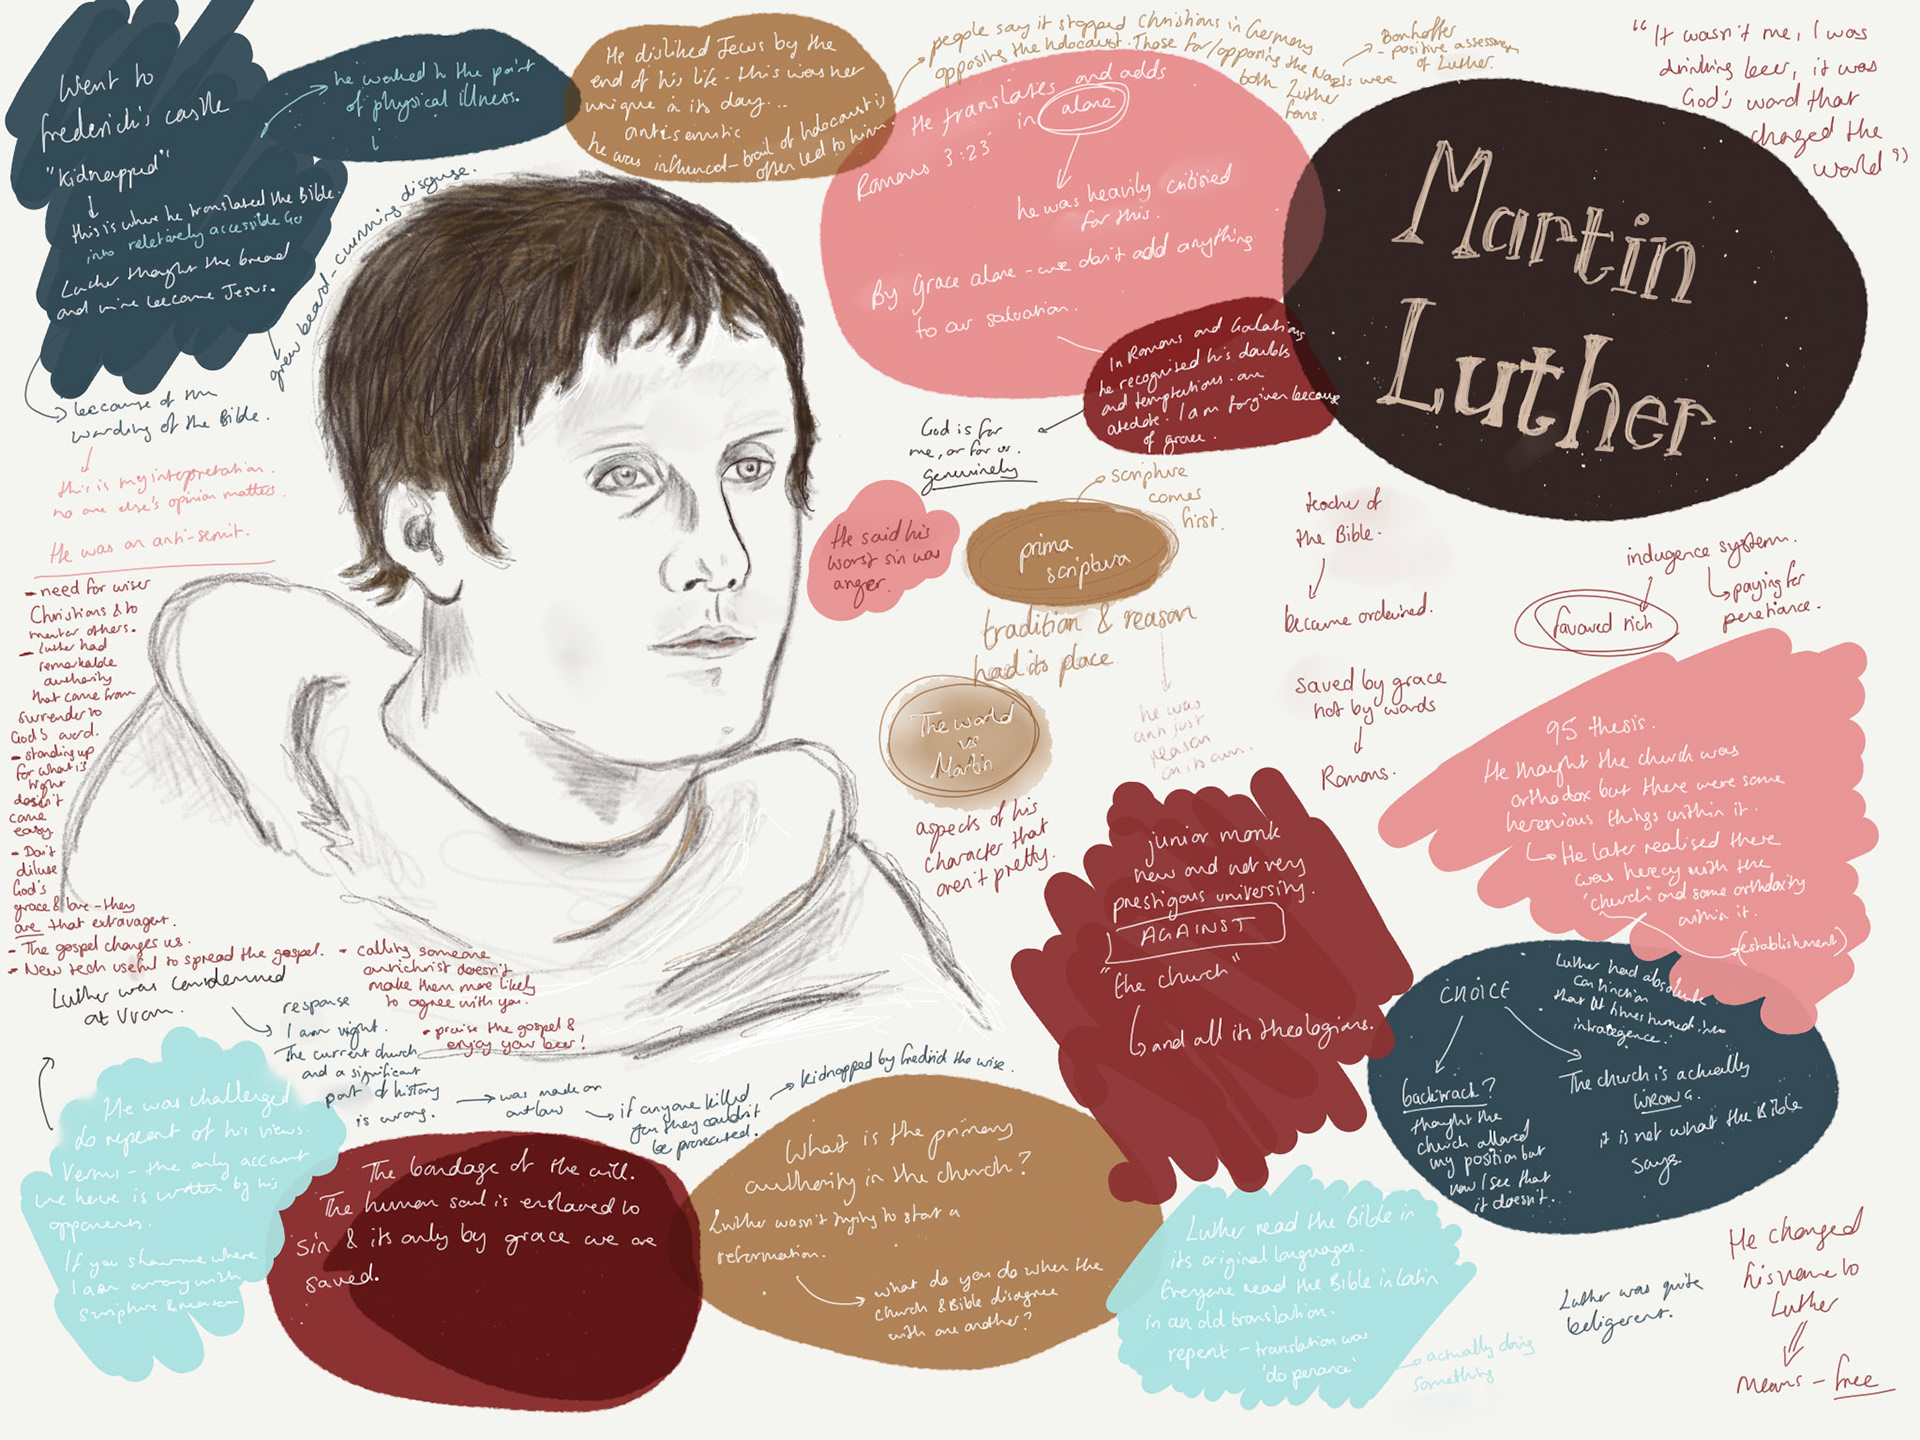 Went to
frederick's castle
"kidnapped"
this is where he translated the Bible
into reletively accessible Ge
Luther thought the bread
and wine became Jesus.
he worked to the point
of physical illness.
He disliked Jews by the
end of his life - this was not
unique in its day...
antisemitic
he was influenced - trail of holocaust is
often led to him.
people say it stopped Christians in Germany
opposing the holocaust. Those for/opposing the Nazis were
both Luther
fans.
Bonhoffer
- positive assessment
of Luther.
"It wasn't me, I was
drinking beer, it was
God's word that
changed the
world"
Martin
Luther
He translates and adds
Romans 3:23 in alone
he was heavily critisied
for this.
By Grace alone - we don't add anything
to our salvation.
In Romans and Galations
he recognised his doubts
and temptations. an
I am forgiven because
of grace.
God is for
me, or for us.
genuinely
grew beard - cunning disguse.
because of the
wording of the Bible.
this is my interpretation.
no one else's opinion matters.
He was an anti-semit.
- need for wiser
Christians & to
mentor others.
- Luther had
remarkable
authority
that came from
surrender to
God's word.
- standing up
for what is
right
doesn't
come
easy.
- Don't
dilute
God's
grace & love - they
are that extravagent.
- The gospel changes us.
- New tech useful to spread the gospel.
- calling someone
antichrist doesn't
make them more likely
to agree with you.
- praise the gospel &
enjoy your beer!
He said his
worst sin was
anger.
scripture
comes
first.
prima
scriptura
tradition & reason
had its place
he was
anti just
reason
on its own.
The world
vs
Martin
aspects of his
character that
aren't pretty.
teacher of
the Bible.
became ordained.
saved by grace
not by words
Romans.
indugence system.
paying for
penetiance.
favoured rich
95 thesis.
He thought the church was
orthodox but there were some
herenious things within it.
He later realised there
was herecy with the
'church' and some orthodoxity
within it.
(establishment)
junior monk
new and not very
prestigous university.
AGAINST
"the church"
and all its theologians.
CHOICE
Luther had absolute
conviction
that at times turned into
backtrack?
thought the
church allowed
my position but
now I see that
it doesn't.
The church is actually
WRONG.
it is not what the Bible
says
Luther was condemned
at
response
I am right.
The current church
and a significant
part of history
is wrong.
was made an
outlaw
if anyone killed
you they couldn't
be prosecuted.
kidnapped by fredrid the wise.
He was challenged
do repent of his views.
Versus - the only account
we have is written by his
opponents.
If you show me where
I am wrong with
scripture & reason
The bondage of the will.
The human soul is enslaved to
sin & its only by grace we are
saved.
What is the primary
authority in the church?
Luther wasn't trying to start a
reformation.
what do you do when the
church & Bible disagree
with one another?
Luther read the Bible in
its original languages.
Everyone read the Bible in latin
in an old translation.
repent - translation was
'do penance'
actually doing
something
Luther was quite
beligerent.
He changed
his name to
Luther
means - free